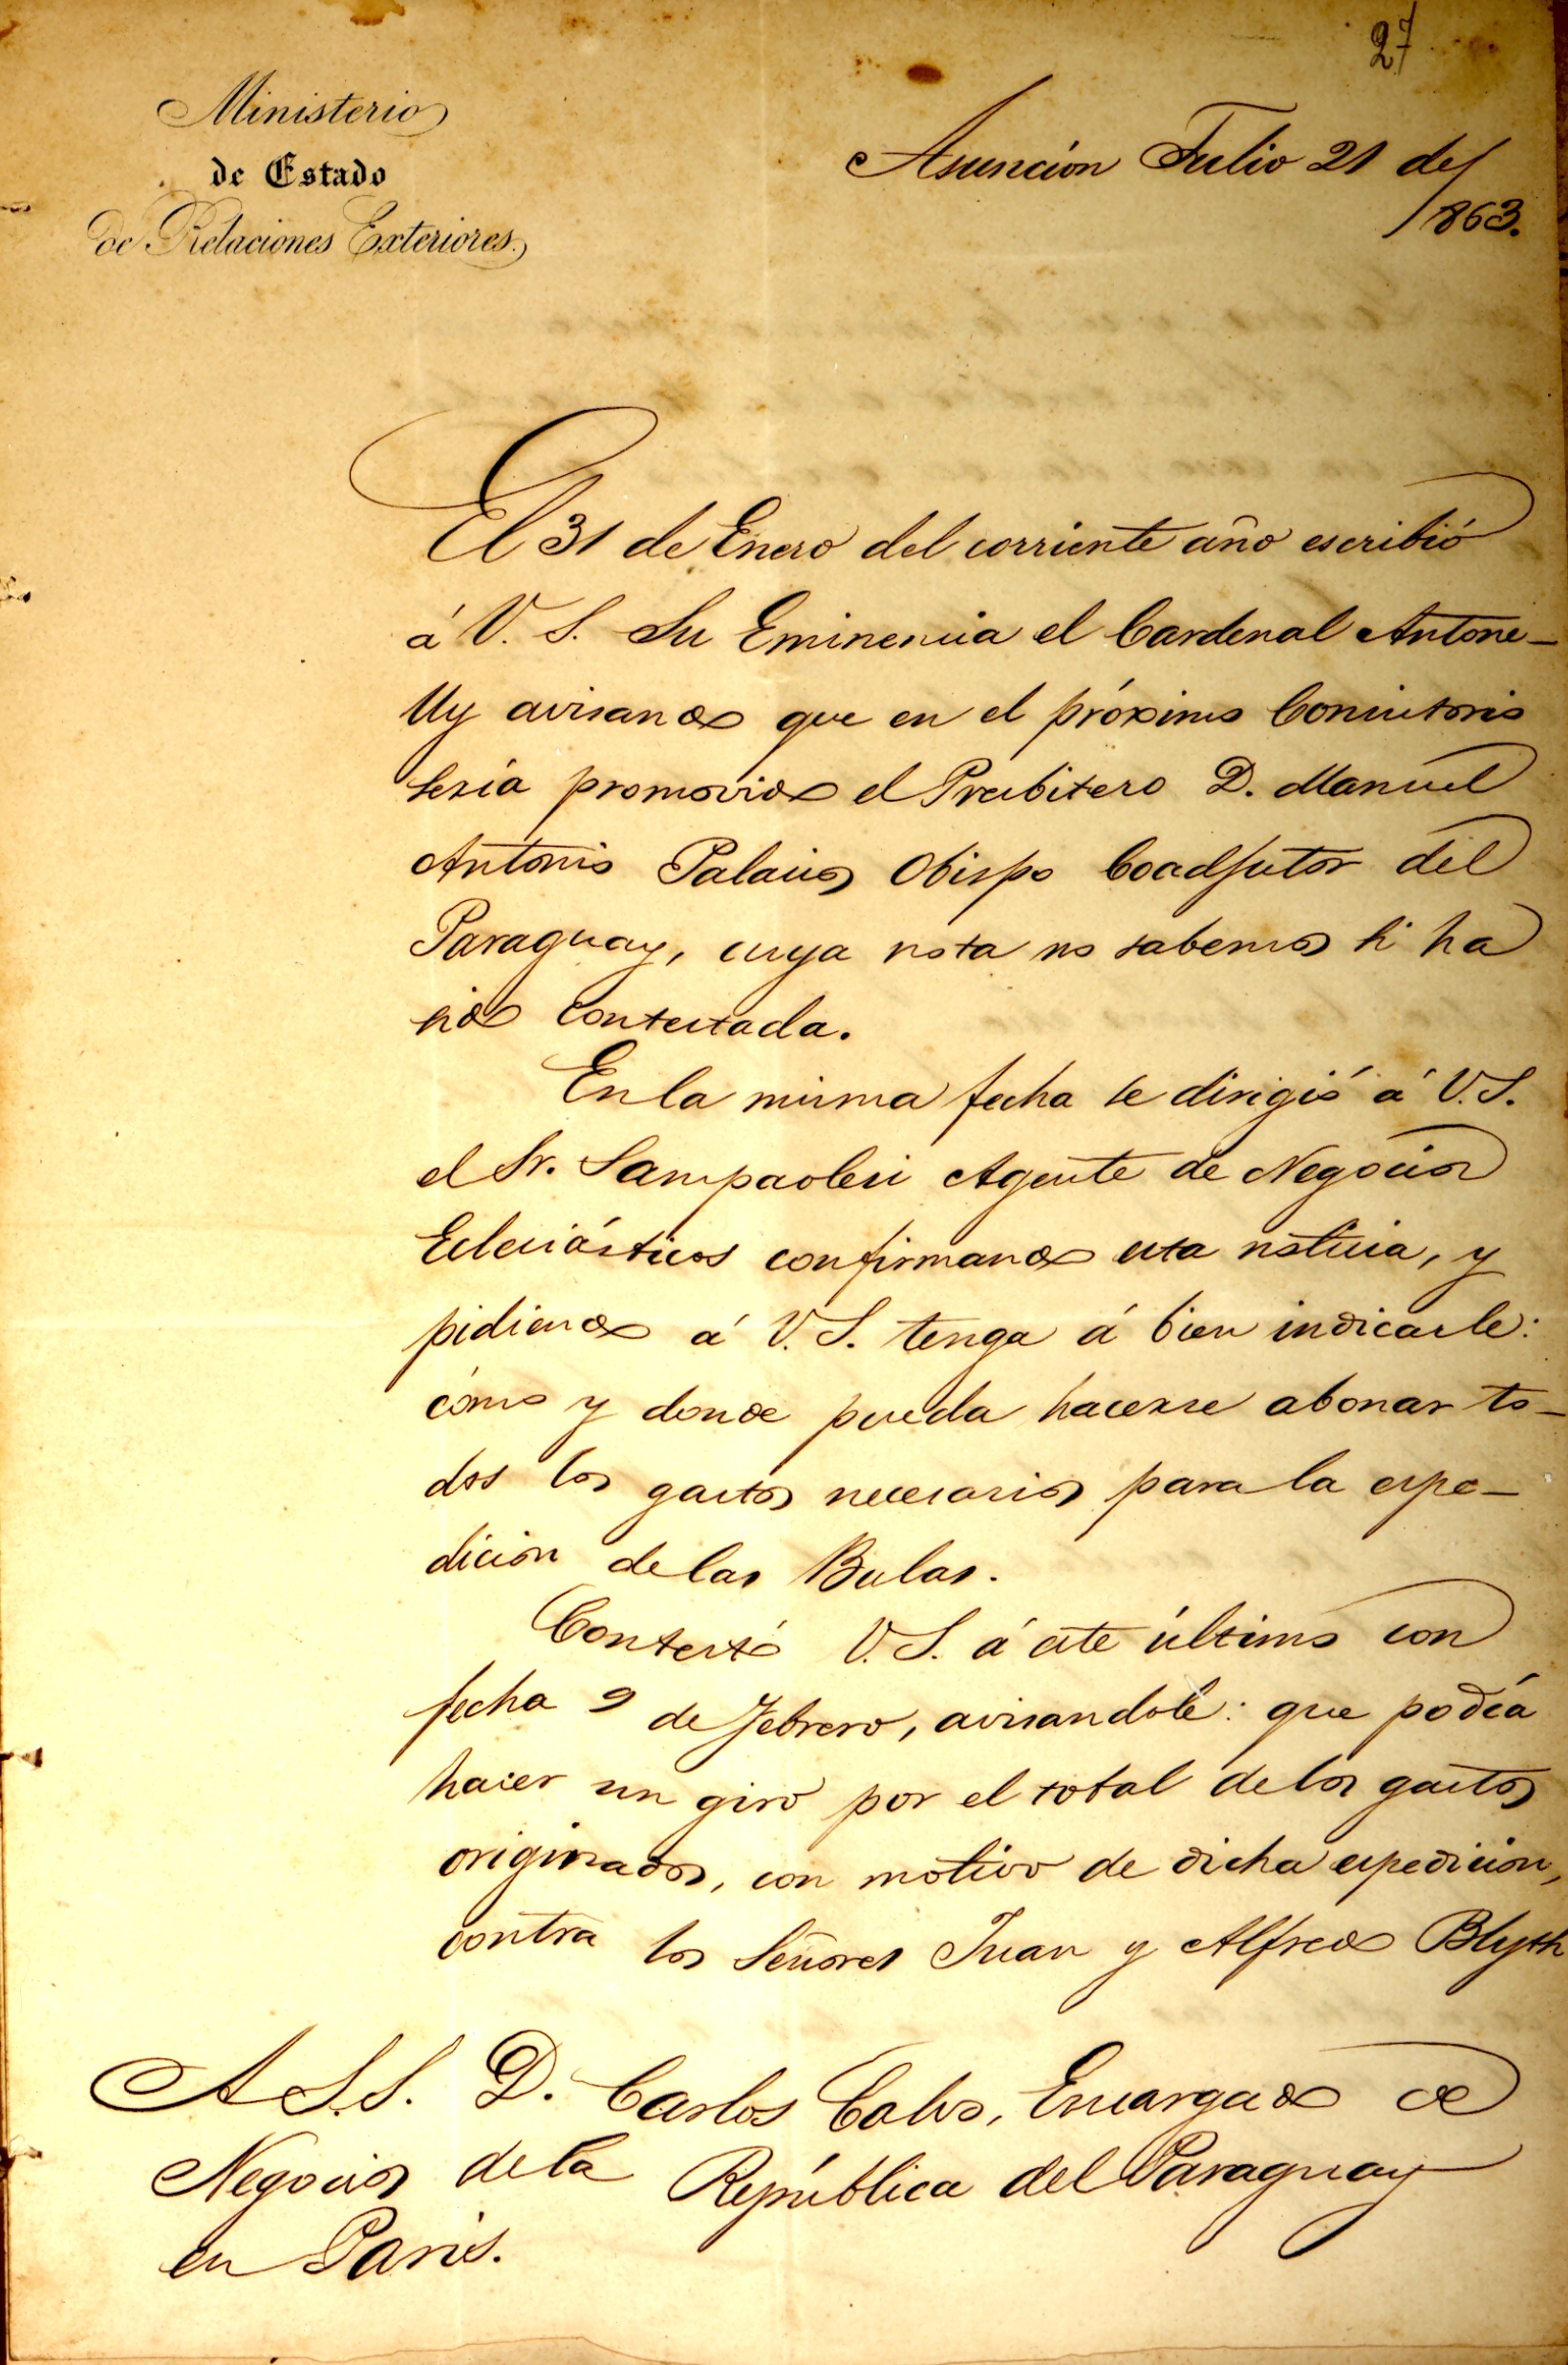 27
Ministerio
de Estado
de Relaciones Exteriores.
Asunción Julio 21 de
1863.
El 31 de Enero del corriente año escribió
á V. S. Su Eminencia el Cardenal Antone-
lly avisando que en el próximo Consistorio
sería promovido el Presbitero D. Manuel
Antonio Palacios Obispo Coadjutor del
Paraguay, cuya nota no sabemos si ha
sido contestada.
En la misma fecha se dirigió á V. S.
el Sr. Sampaolesi Agente de Negocios
Eclesiásticos confirmando esta noticia, y
pidiendo á V. S. tenga á bien indicarle:
cómo y donde pueda hacerse abonar to-
dos los gastos necesarios para la espe-
dicion de las Bulas.
Contestó V. S. á este último con
fecha 9 de Febrero, avisandole: que podía
hacer un giro por el total de los gastos
originados, con motivo de dicha espedicion,
contra los Señores Juan y Alfredo Blyth
A S. S. D. Carlos Calvo, Encargado de
Negocios de la República del Paraguay
en Paris.